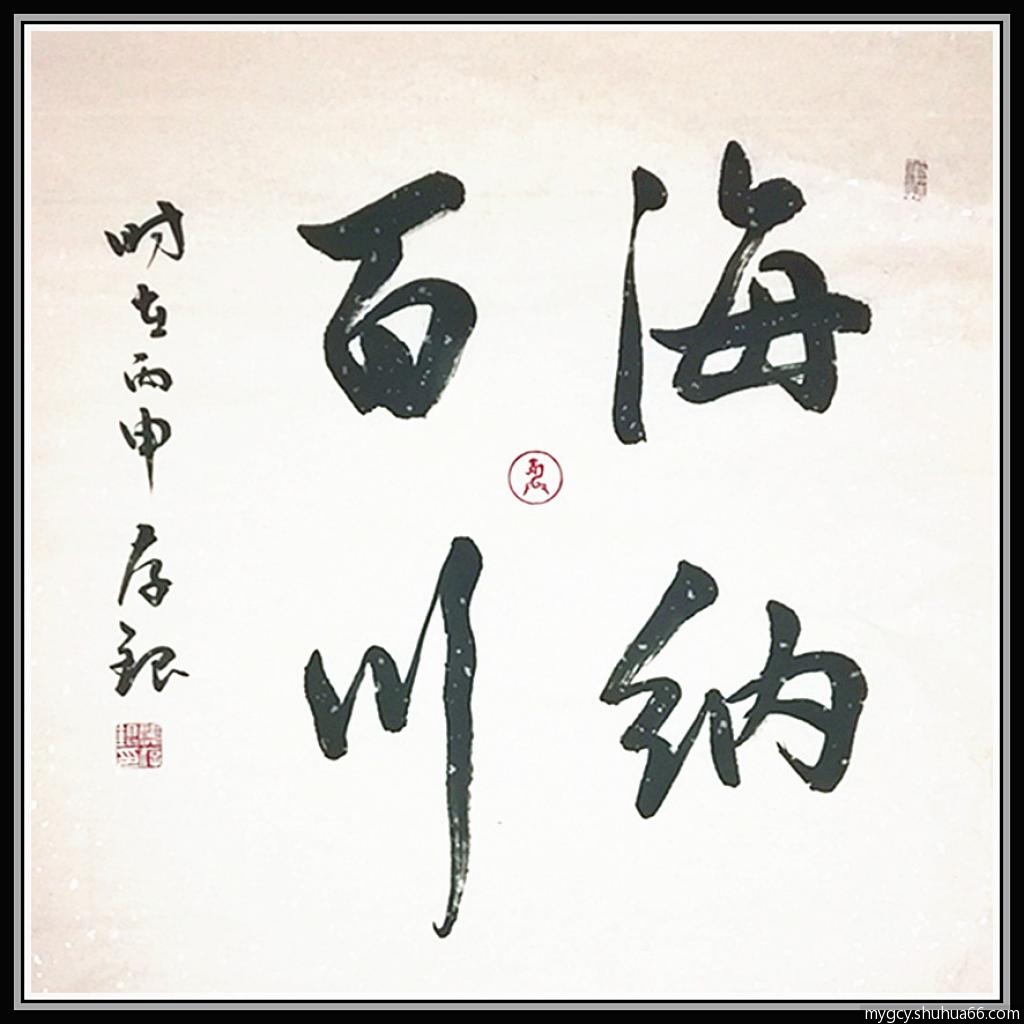 海纳
百川
时在丙申 存银
mygcy.shuhua66.com